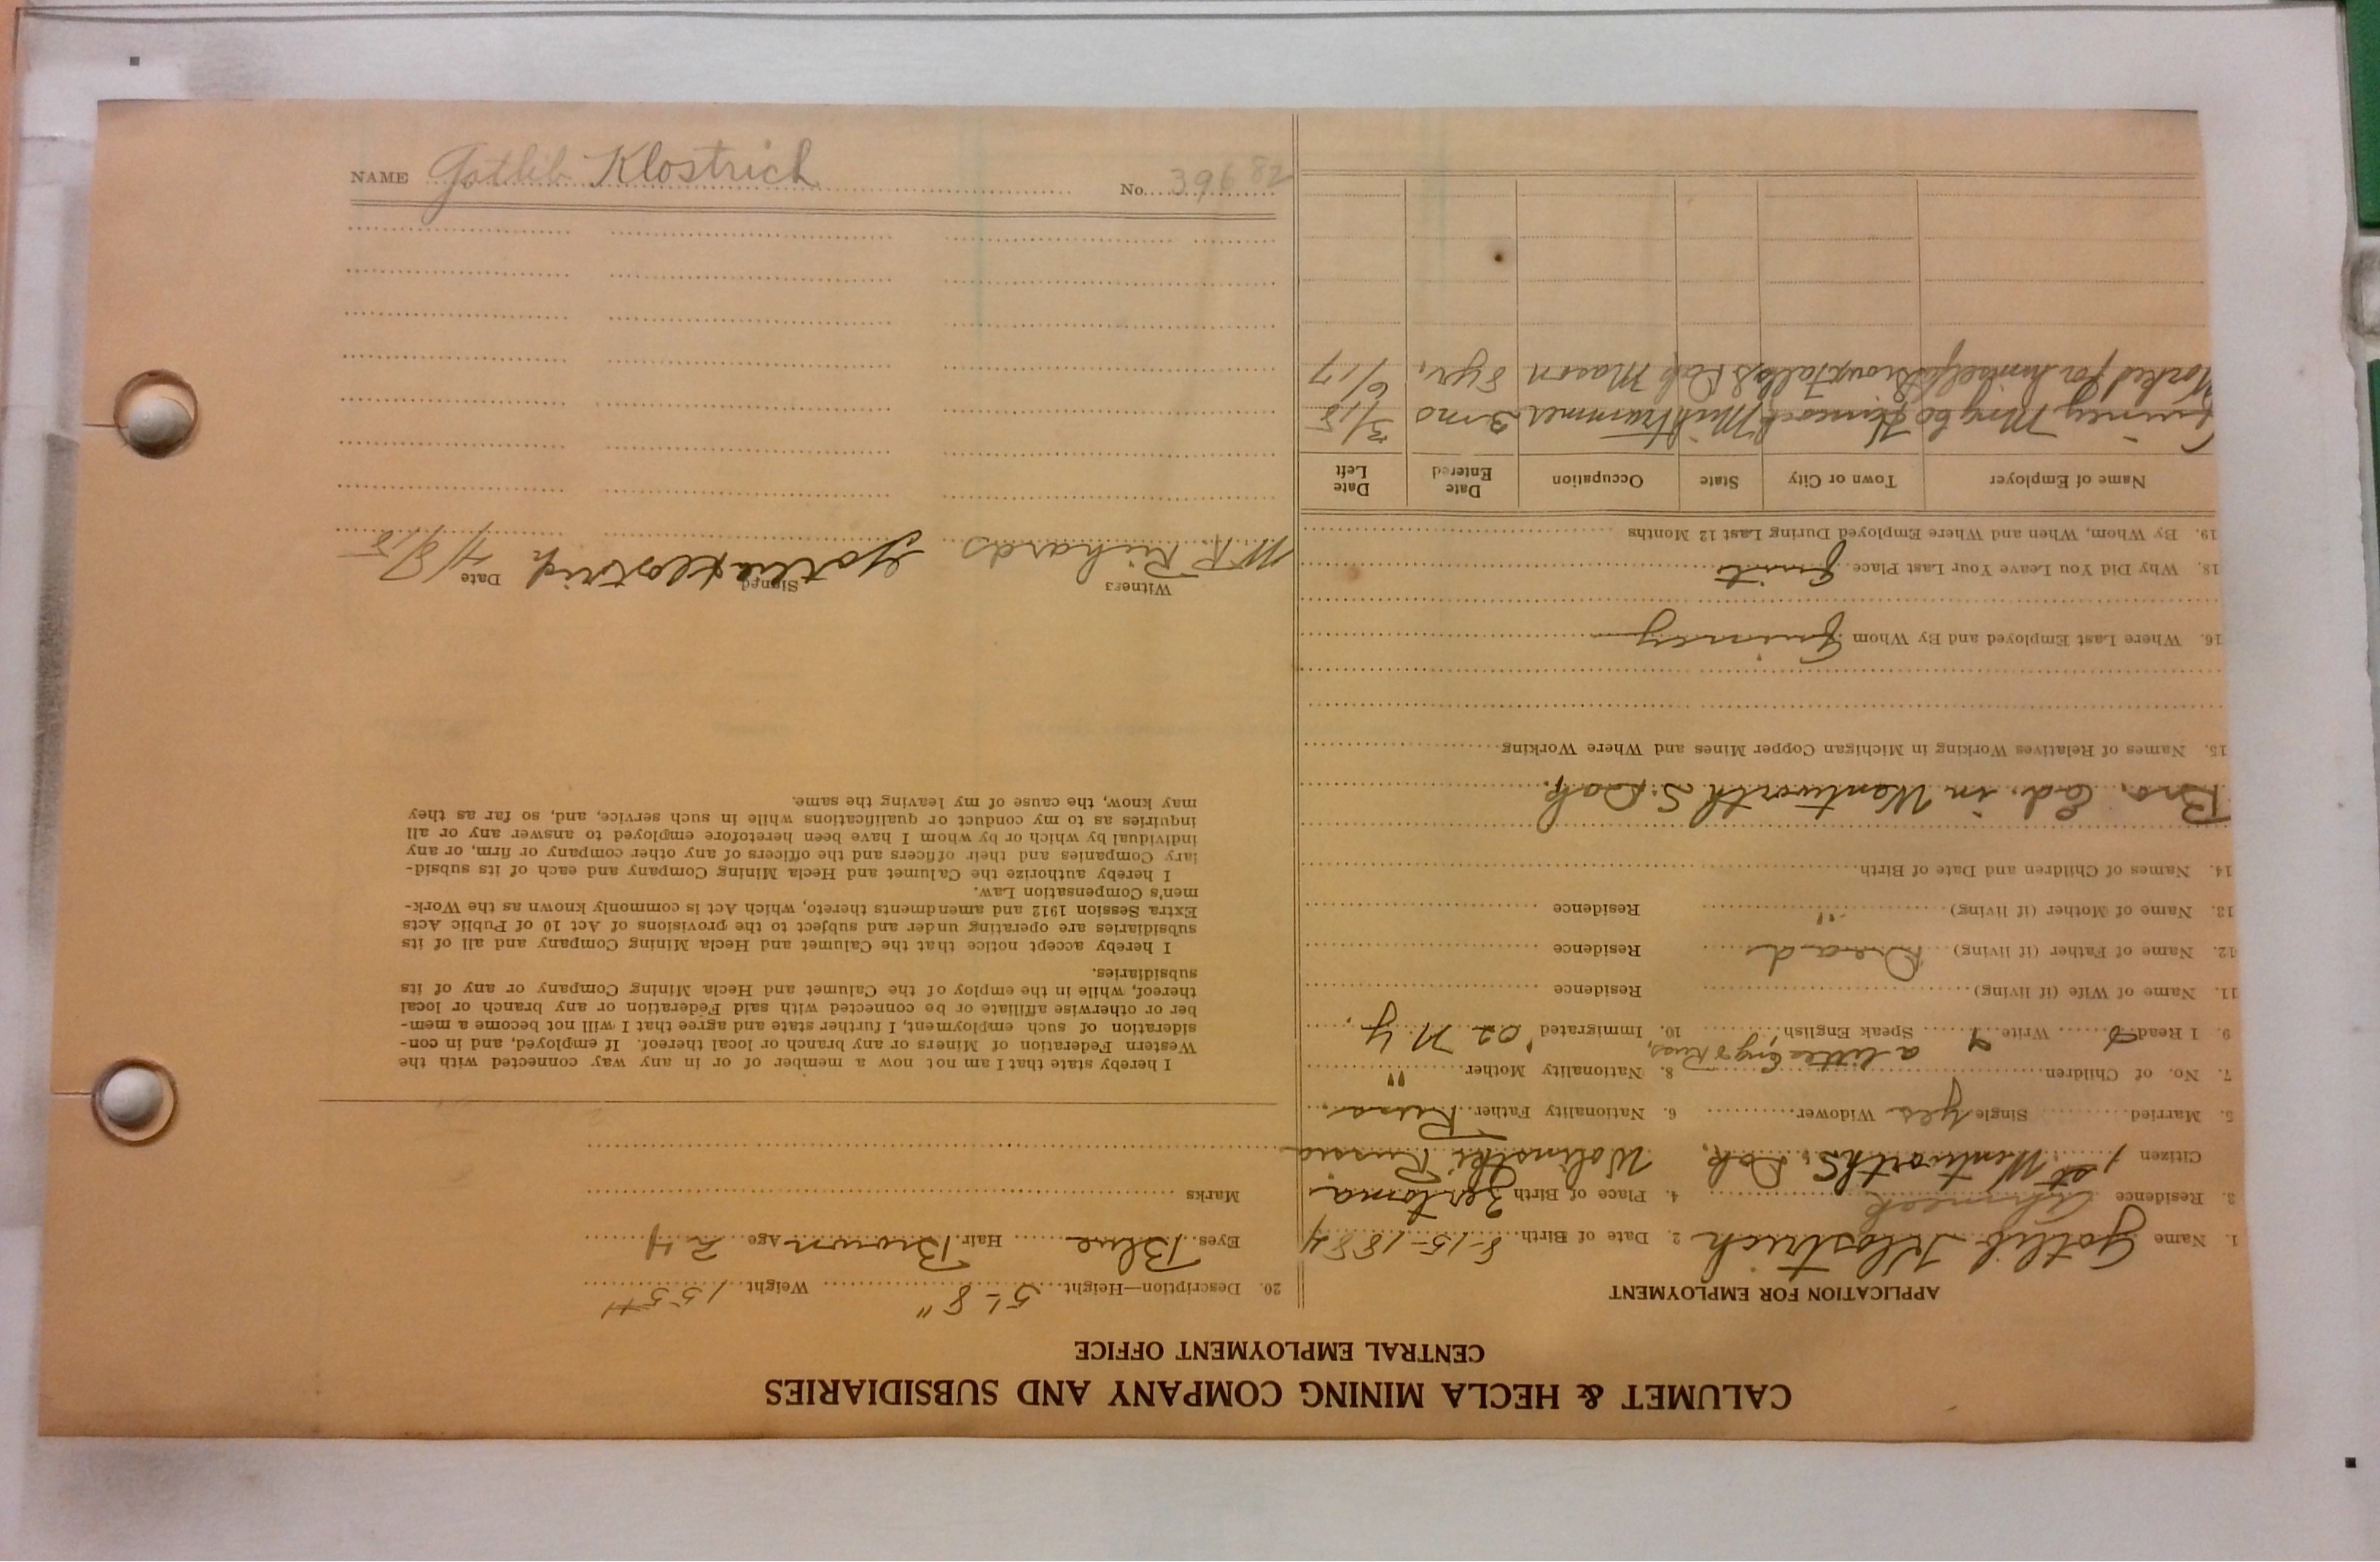 CALUMET & HECLA MINING COMPANY AND SUBSIDIARIES
CENTRAL EMPLOYMENT OFFICE
APPLICATION FOR EMPLOYMENT
1. Name Gotlib Klostrich 2. Date of Birth 8-15-1884
3. Residence Ahmeek 4. Place of Birth
Citizen 1st Wentworth S. Dak. Russia
5. Married Single yes Widower 6. Nationality Father Russ
7. No. of Children 8. Nationality Mother "
9. I Read Write Speak English a little Eng & Russ, 10. Immigrated '02 N.Y.
11. Name of Wife (if living) Residence
12. Name of Father (if living) Dead Residence
13. Name of Mother (if living) " Residence
14. Names of Children and Date of Birth
Bro. Ed. in Wentworth S. Dak.
15. Names of Relatives Working in Michigan Copper Mines and Where Working
16. Where Last Employed and By Whom Quincy
18. Why Did You Leave Your Last Place Quit
19. By Whom, When and Where Employed During Last 12 Months
Name of Employer Town or City State Occupation Date Entered Date Left
Quincy Mng Co Hancock Mich Trammer 3 mo 3/18
Worked for himself Sioux Falls S Dak Mason 8 yr. 6/17
20. Description—Height 5'-8" Weight 155#
Eyes Blue Hair Brown Age
Marks
I hereby state that I am not now a member of or in any way connected with the
Western Federation of Miners or any branch or local thereof. If employed, and in con-
sideration of such employment, I further state and agree that I will not become a mem-
ber or otherwise affiliate or be connected with said Federation or any branch or local
thereof, while in the employ of the Calumet and Hecla Mining Company or any of its
subsidiaries.
I hereby accept notice that the Calumet and Hecla Mining Company and all of its
subsidiaries are operating under and subject to the provisions of Act 10 of Public Acts
Extra Session 1912 and amendments thereto, which Act is commonly known as the Work-
men's Compensation Law.
I hereby authorize the Calumet and Hecla Mining Company and each of its subsid-
iary Companies and their officers and the officers of any other company or firm, or any
individual by which or by whom I have been heretofore employed to answer any or all
inquiries as to my conduct or qualifications while in such service, and, so far as they
may know, the cause of my leaving the same.
Witness Signed Date
Richards Klostrich 4/8/18
NAME Gotlib Klostrich No. 39682